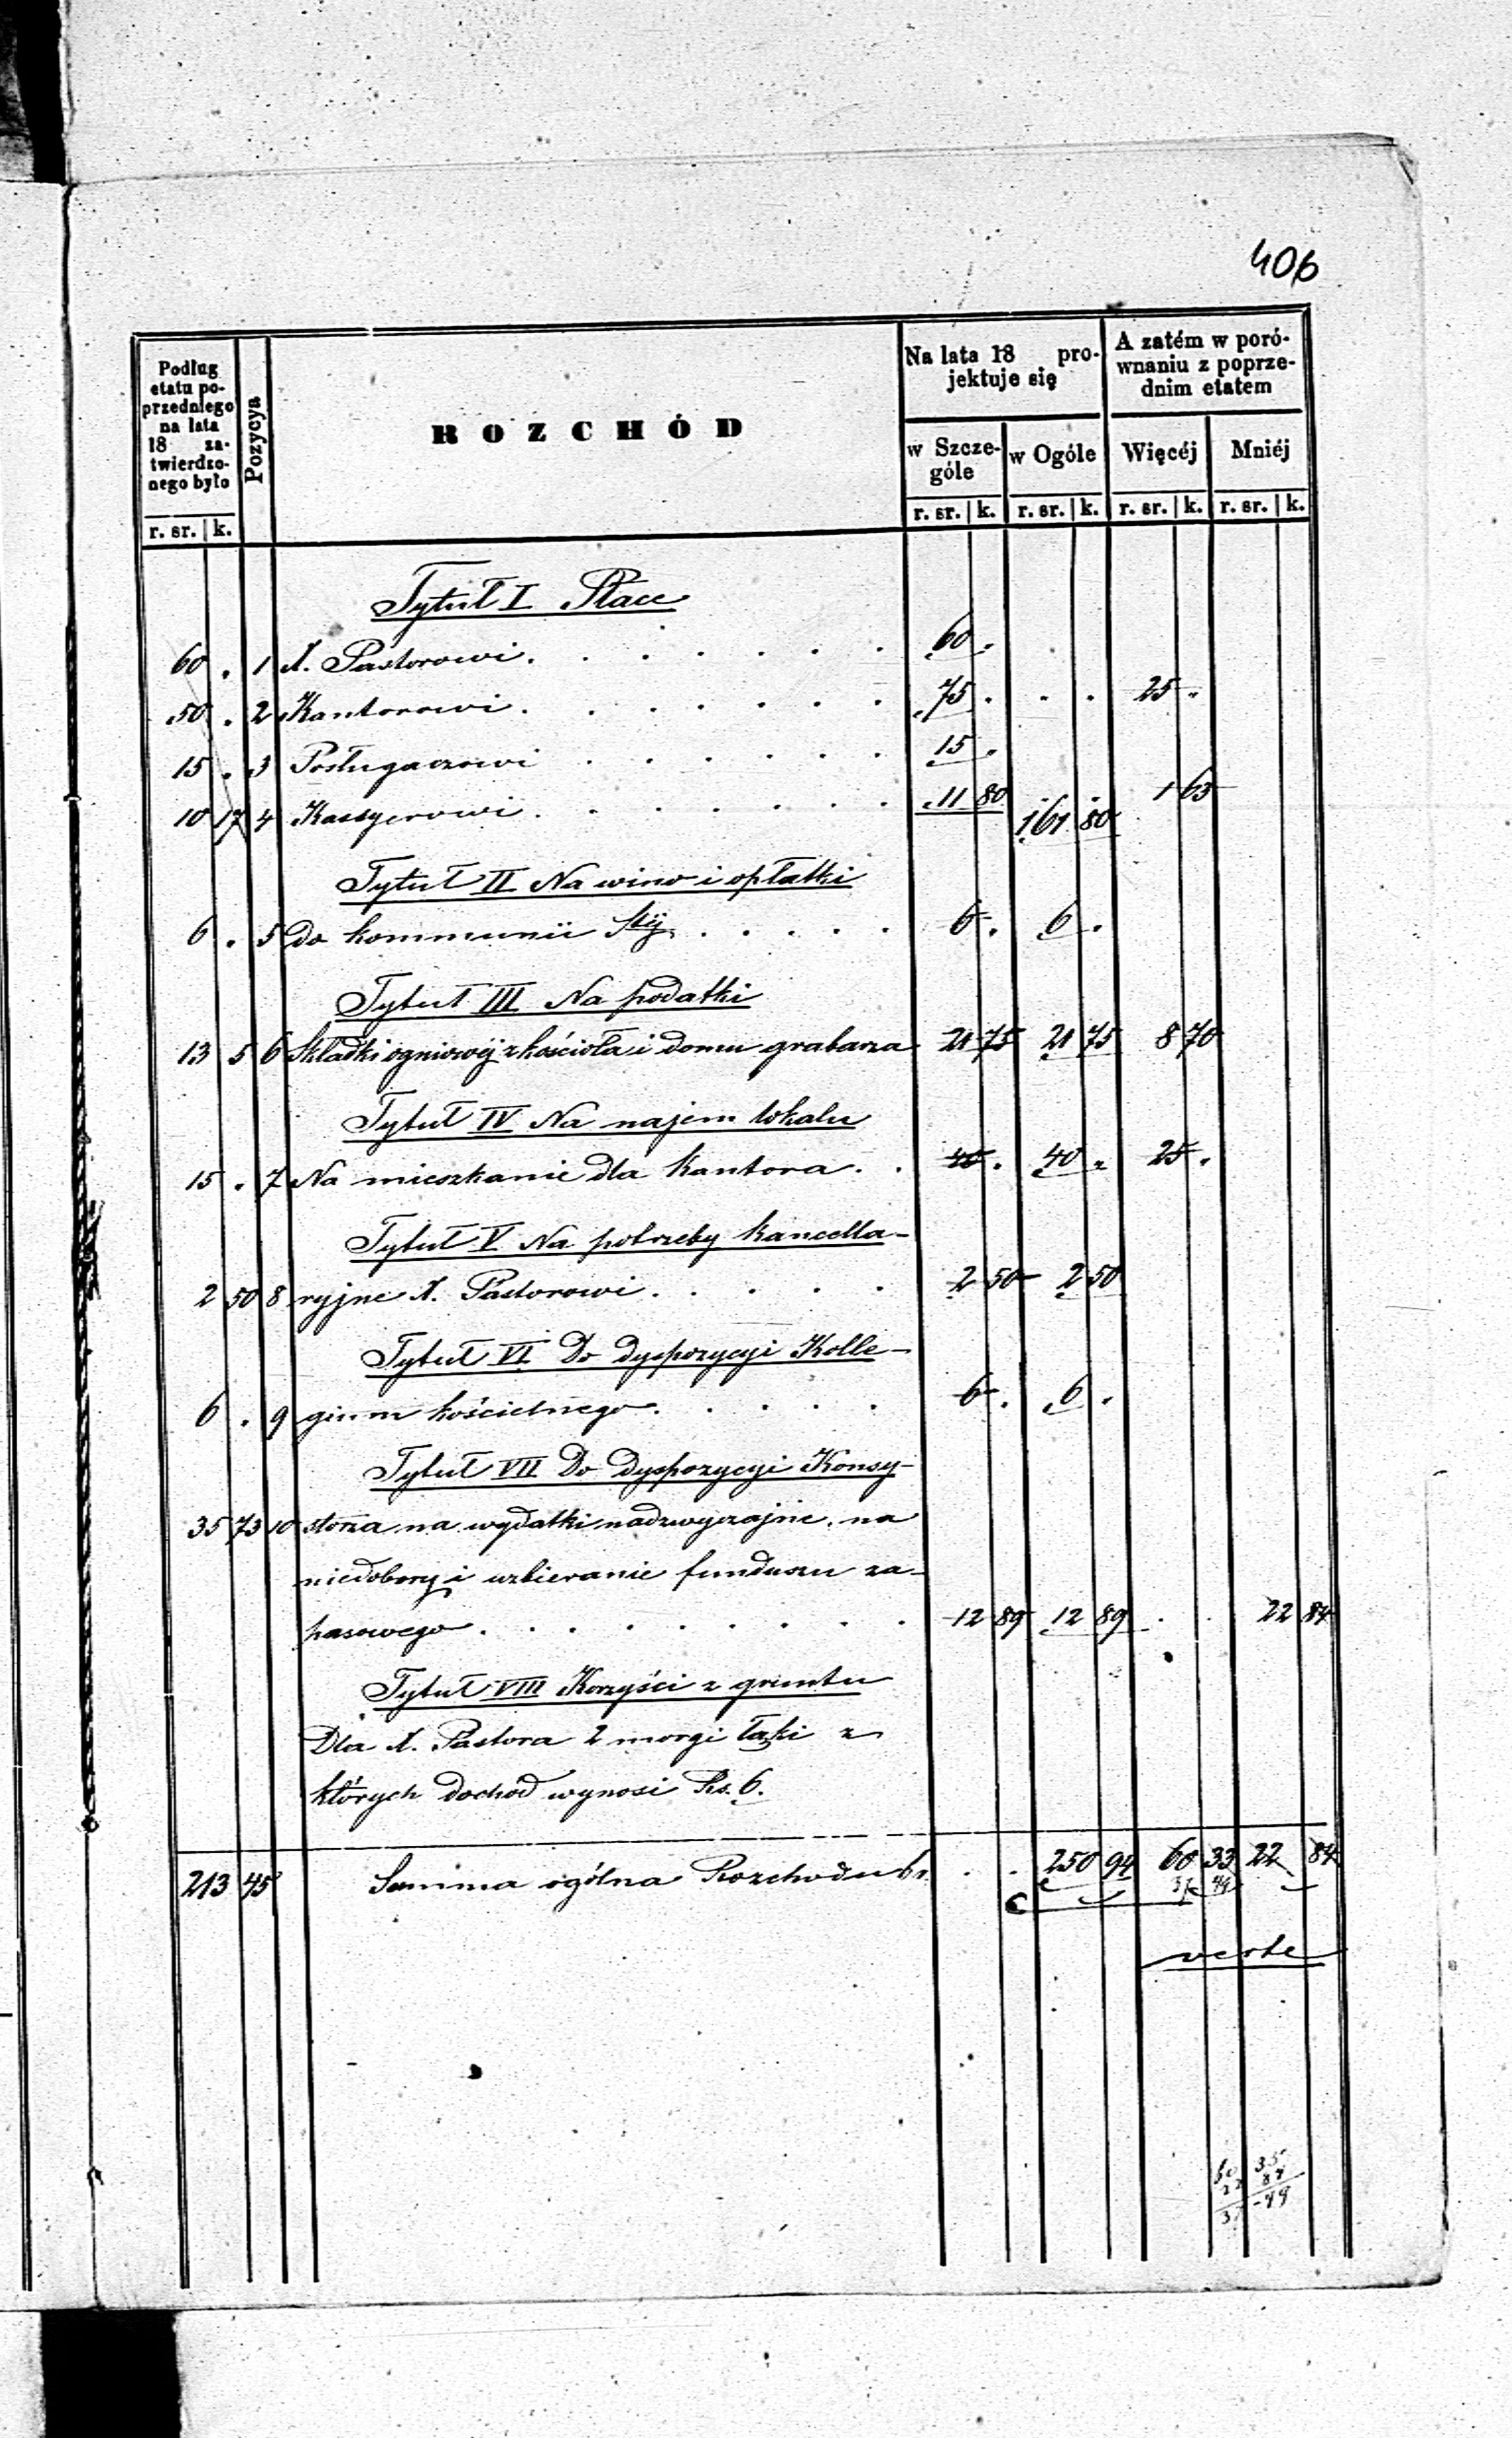 406
Podług etatu poprzedniego na lata 18 zatwierdzonego było
Pozycya
ROZCHÓD
Na lata 18 projektuje się
A zatém w porównaniu z poprzednim etatem
w Szczególe w Ogóle Więcéj Mniéj
r. sr. k. r. sr. k. r. sr. k. r. sr. k. r. sr. k.
Tytuł I Płace
60 . 1 X. Pastorowi . . . . . . . 60 .
50 . 2 Kantorowi . . . . . . . 75 . . . 25 .
15 . 3 Posługaczowi . . . . . . 15 .
10 17 4 Kassyerowi . . . . . . . 11 80 161 80 1 63
Tytuł II Na wino i opłatki
6 . 5 do kommunii Stéj . . . . . 6 . 6 .
Tytuł III Na podatki
13 5 6 Składki ogniowéj z kościoła i domu grabarza 21 75 21 75 8 70
Tytuł IV Na najem lokalu
15 . 7 Na mieszkanie dla Kantora . . 40 . 40 . 25 .
Tytuł V Na potrzeby kancella-
2 50 8 ryjne X. Pastorowi . . . . . 2 50 2 50
Tytuł VI Do dyspozycyi Kolle-
6 . 9 gium kościelnego . . . . . 6 . 6 .
Tytuł VII Do dyspozycyi Konsy-
35 73 10 storza na wydatki nadzwyczajne, na
niedobory i uzbieranie funduszu za-
pasowego . . . . . . . . 12 89 12 89 . . 22 84
Tytuł VIII Korzyści z gruntu
Dla X. Pastora 2 morgi łąki z
których dochód wynosi Rs. 6.
213 45 Summa ogólna Rozchodu . . 250 94 60 33 22 84
37 49
verte